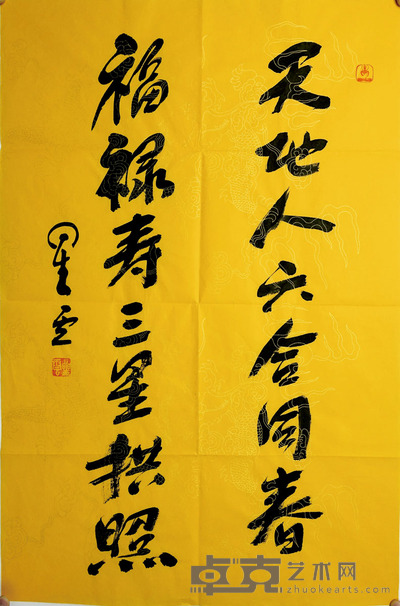 天地人六合同春
福禄寿三星拱照
星云
卓克艺术网
zhuokearts.com